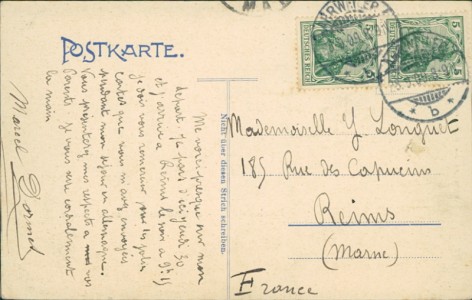 POSTKARTE.
Me voici presque sur mon
départ. Je pars d'ici jeudi 30
et j'arrive à Reims le soir à 9h15
je dois vous remercier pour les jolies
cartes que vous m'avez envoyées
pendant mon séjour en Allemagne.
Vous présenterez mes respects à vos
parents. Je vous serre cordialement
la main
Marcel Dormet
Nicht über diesen Strich schreiben.
DEUTSCHES REICH
5 5
DEUTSCHES REICH
5 5
* b *
Mademoiselle Y Longuet
185 Rue des Capucins
Reims
(Marne)
France